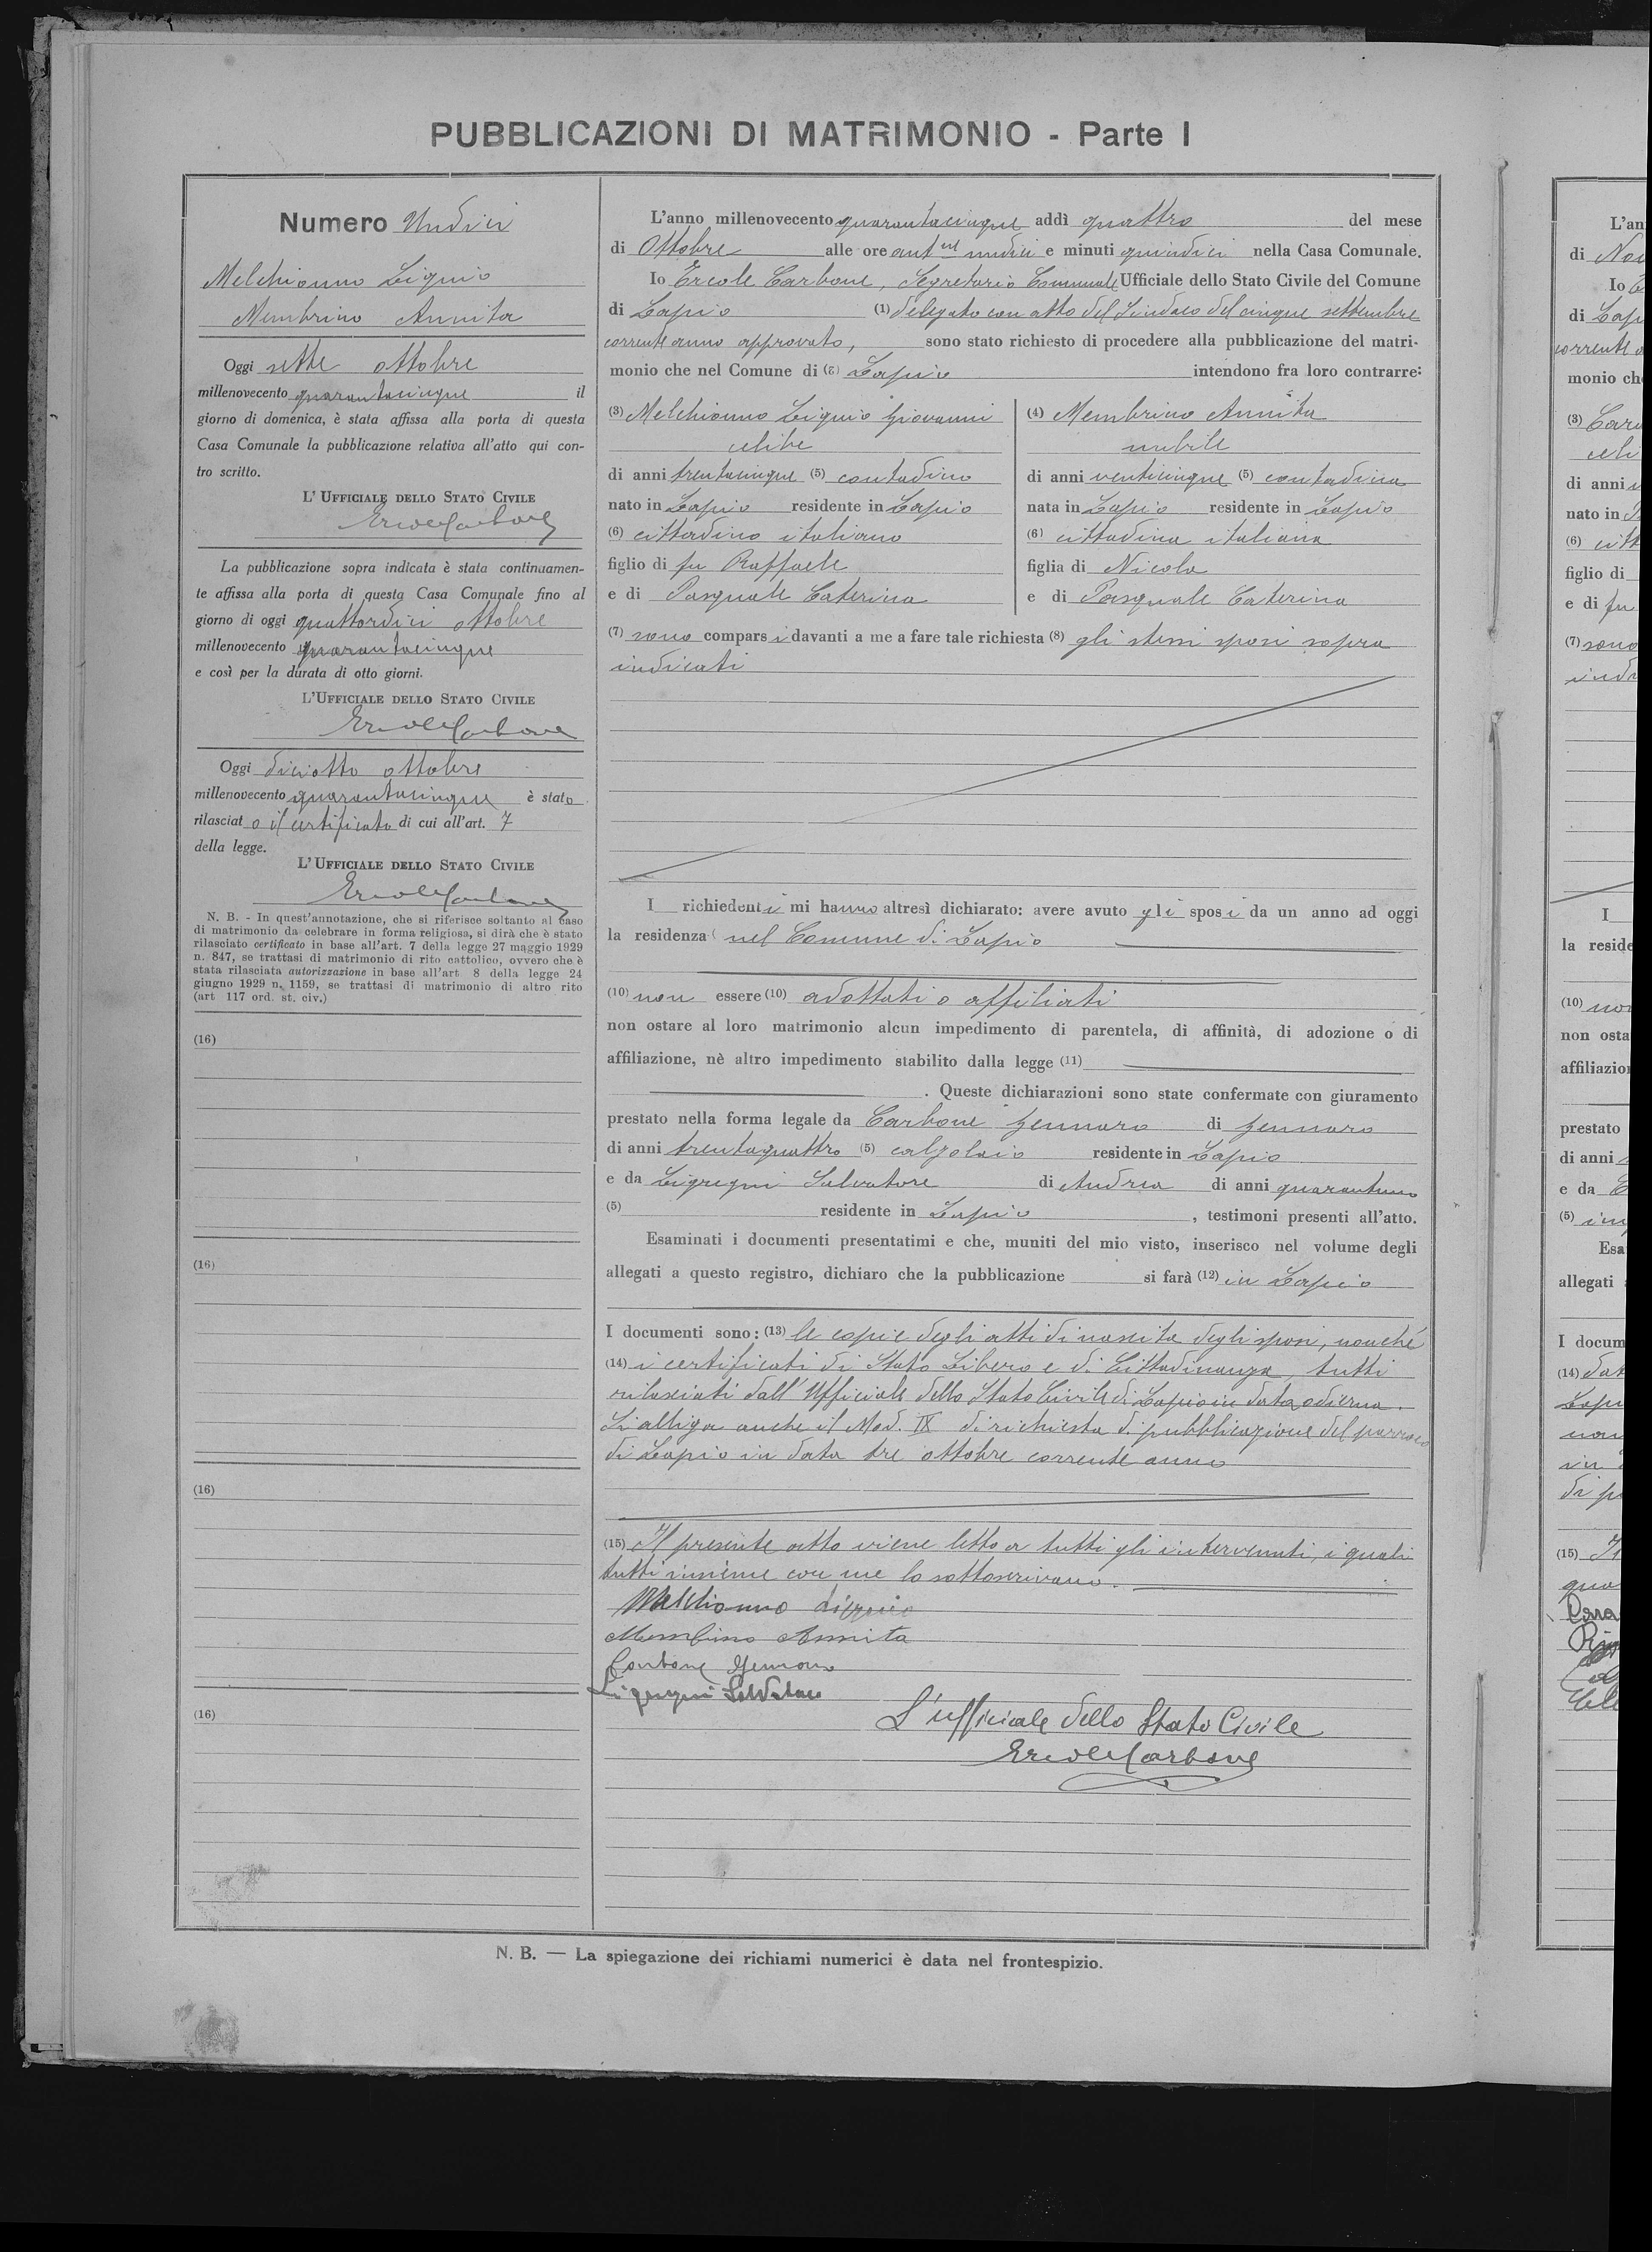 PUBBLICAZIONI DI MATRIMONIO - Parte I
Numero Undici
Melchionno Liguio
Membrino Annita
Oggi sette ottobre
millenovecento quarantacinque il
giorno di domenica, è stata affissa alla porta di questa
Casa Comunale la pubblicazione relativa all'atto qui con-
tro scritto.
L'UFFICIALE DELLO STATO CIVILE
Ercole Carbone
La pubblicazione sopra indicata è stata continuamen-
te affissa alla porta di questa Casa Comunale fino al
giorno di oggi quattordici ottobre
millenovecento quarantacinque
e così per la durata di otto giorni.
L'UFFICIALE DELLO STATO CIVILE
Ercole Carbone
Oggi diciotto ottobre
millenovecento quarantacinque è stato
rilasciato il certificato di cui all'art. 7
della legge.
L'UFFICIALE DELLO STATO CIVILE
Ercole Carbone
N. B. - In quest'annotazione, che si riferisce soltanto al caso
di matrimonio da celebrare in forma religiosa, si dirà che è stato
rilasciato certificato in base all'art. 7 della legge 27 maggio 1929
n. 847, se trattasi di matrimonio di rito cattolico, ovvero che è
stata rilasciata autorizzazione in base all'art 8 della legge 24
giugno 1929 n. 1159, se trattasi di matrimonio di altro rito
(art 117 ord. st. civ.)
(16)
(16)
(16)
(16)
L'anno millenovecento quarantacinque addì quattro del mese
di Ottobre alle ore ant.ne undici e minuti quindici nella Casa Comunale.
Io Ercole Carbone, Segretario Comunale Ufficiale dello Stato Civile del Comune
di Lapio (1) delegato con atto del Sindaco del cinque settembre
corrente anno approvato, sono stato richiesto di procedere alla pubblicazione del matri-
monio che nel Comune di (2) Lapio intendono fra loro contrarre:
(3) Melchionno Liguio Giovanni
celibe
di anni trentacinque (5) contadino
nato in Lapio residente in Lapio
(6) cittadino italiano
figlio di fu Raffaele
e di Pasquale Caterina
(4) Membrino Annita
nubile
di anni venticinque (5) contadina
nata in Lapio residente in Lapio
(6) cittadina italiana
figlia di Nicola
e di Pasquale Caterina
(7) sono comparsi davanti a me a fare tale richiesta (8) gli stessi sposi sopra
indicati
I richiedenti mi hanno altresì dichiarato: avere avuto gli sposi da un anno ad oggi
la residenza nel Comune di Lapio
(10) non essere (10) adottati o affiliati
non ostare al loro matrimonio alcun impedimento di parentela, di affinità, di adozione o di
affiliazione, nè altro impedimento stabilito dalla legge (11)
. Queste dichiarazioni sono state confermate con giuramento
prestato nella forma legale da Carbone Gennaro di Gennaro
di anni trentaquattro (5) calzolaio residente in Lapio
e da Ligregni Salvatore di Andrea di anni quarantuno
(5) residente in Lapio , testimoni presenti all'atto.
Esaminati i documenti presentatimi e che, muniti del mio visto, inserisco nel volume degli
allegati a questo registro, dichiaro che la pubblicazione si farà (12) in Lapio
I documenti sono: (13) le copie degli atti di nascita degli sposi, nonché
(14) i certificati di Stato Libero e di Cittadinanza, tutti
rilasciati dall'Ufficiale dello Stato Civile di Lapio in data odierna.
Si alliga anche il Mod. IX di richiesta di pubblicazione del parroco
di Lapio in data tre ottobre corrente anno
(15) Il presente atto viene letto a tutti gli intervenuti, i quali
tutti insieme con me lo sottoscrivano.
Melchionno Liguio
Membrino Annita
Carbone Gennaro
Ligregni Salvatore
L'ufficiale dello Stato Civile
Ercole Carbone
N. B. — La spiegazione dei richiami numerici è data nel frontespizio.
L'an
di
Io
di Lap
corrente
monio ch
(3) Car
celi
di anni
nato in
(6) citt
figlio di
e di fu
(7) sono
indi
I
la reside
(10) non
non osta
affiliazio
prestato
di anni
e da
(5)
Esa
allegati
I docum
(14)
(15)